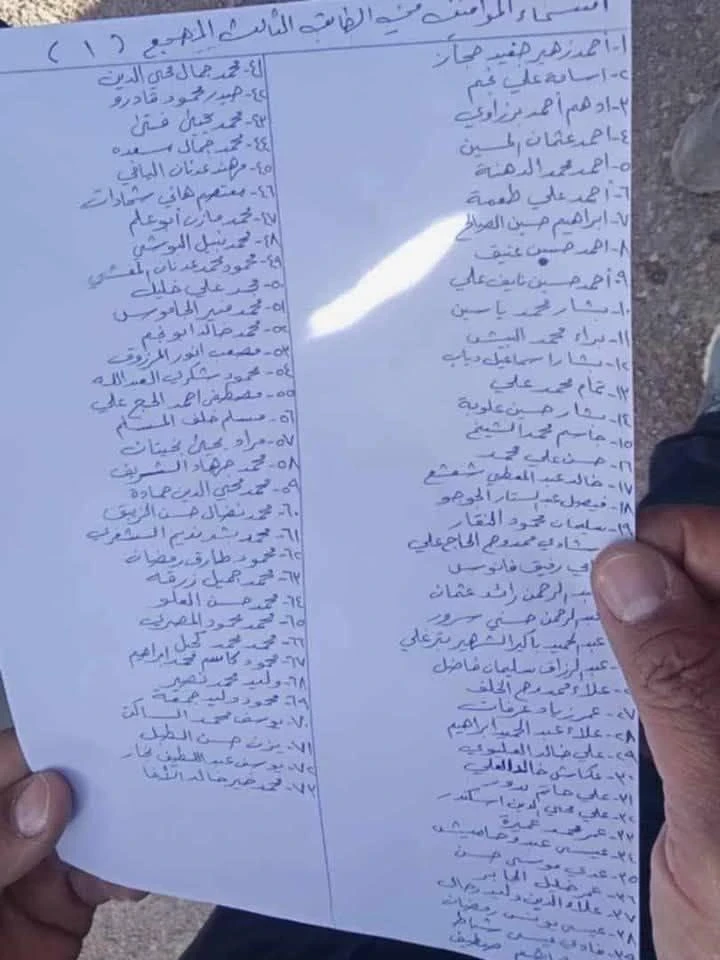 أسماء الموافقين في الطابق الثالث المهجع (١)
١- أحمد زهير حفيد حجاز
٢- اسامة علي نجم
٣- ادهم أحمد برزاوي
٤- احمد عثمان الحسين
٥- احمد محمد الدهنة
٦- أحمد علي طعمة
٧- ابراهيم حسين الصالح
٨- احمد حسين عنيق
٩- أحمد حسين نايف علي
١٠- بشار محمد ياسين
١١- براء محمد البيش
١٢- بشار اسماعيل دياب
١٣- تمام محمد علي
١٤- بشار حسين علوية
١٥- جاسم محمد الشيخ
١٦- حسن علي محمد
١٧- خالد عبد المعطي شعشع
١٨- فيصل عبد الستار الجوجو
١٩- سليمان محمود النقار
شادي ممدوح الحاج علي
رفيق فانوس
الرحمن رائد عثمان
عبد الرحمن حسني سرور
عبد الحميد باكير الشهير بتر علي
عبد الرزاق سليمان فاضل
علاء ممدوح الخلف
٢٧- عمر زياد عرفات
٢٨- علاء عبد الحميد ابراهيم
٢٩- علي خالد العليوي
٣٠- عكاش خالد العلي
٣١- علي حاتم بدور
٣٢- علي محي الدين اسكندر
٣٣- عمر محمد عميرة
٣٤- عيسى عبدو حاميش
٣٥- عدي موسى حسن
٣٦- عمر خليل الجابر
٣٧- علاء الدين وليد رحال
٣٨- عيسى يونس رمضان
٣٩- فادي عيسى شباط
٤١- محمد جمال محي الدين
٤٢- حيدر محمود قادرو
٤٣- محمد يحيى فتى
٤٤- محمد جمال سعده
٤٥- مهند عدنان الباني
٤٦- معتصم هاني شحادات
٤٧- محمد مازن أبو علم
٤٨- محمد نبيل البوشي
٤٩- محمود محمد عدنان المفشي
٥٠- محمد علي خليل
٥١- محمد منير الجاموس
٥٢- محمد خالد ابو نجم
٥٣- مصعب انور المرزوق
٥٤- محمود شكري العبد الله
٥٥- مصطفى احمد الحج علي
٥٦- مسلم خلف المسلم
٥٧- مراد يحيى نجينان
٥٨- محمد جهاد الشريف
٥٩- محمد محي الدين حمادة
٦٠- محمد نضال حسن الزيبق
٦١- محمد رشد نديم السنقري
٦٢- محمود طارق رمضان
٦٣- محمد جميل زرقه
٦٤- محمد حسن العلو
٦٥- محمد محمود المصري
٦٦- محمد محمد كحيل
٦٧- محمود قاسم محمد ابراهيم
٦٨- وليد محمد نصير
٦٩- محمود وليد جمعة
٧٠- يوسف محمد الساكت
٧١- يزن حسن الطبل
٧٢- يوسف عبد اللطيف نجار
٧٣- محمد خير خالد الشفا